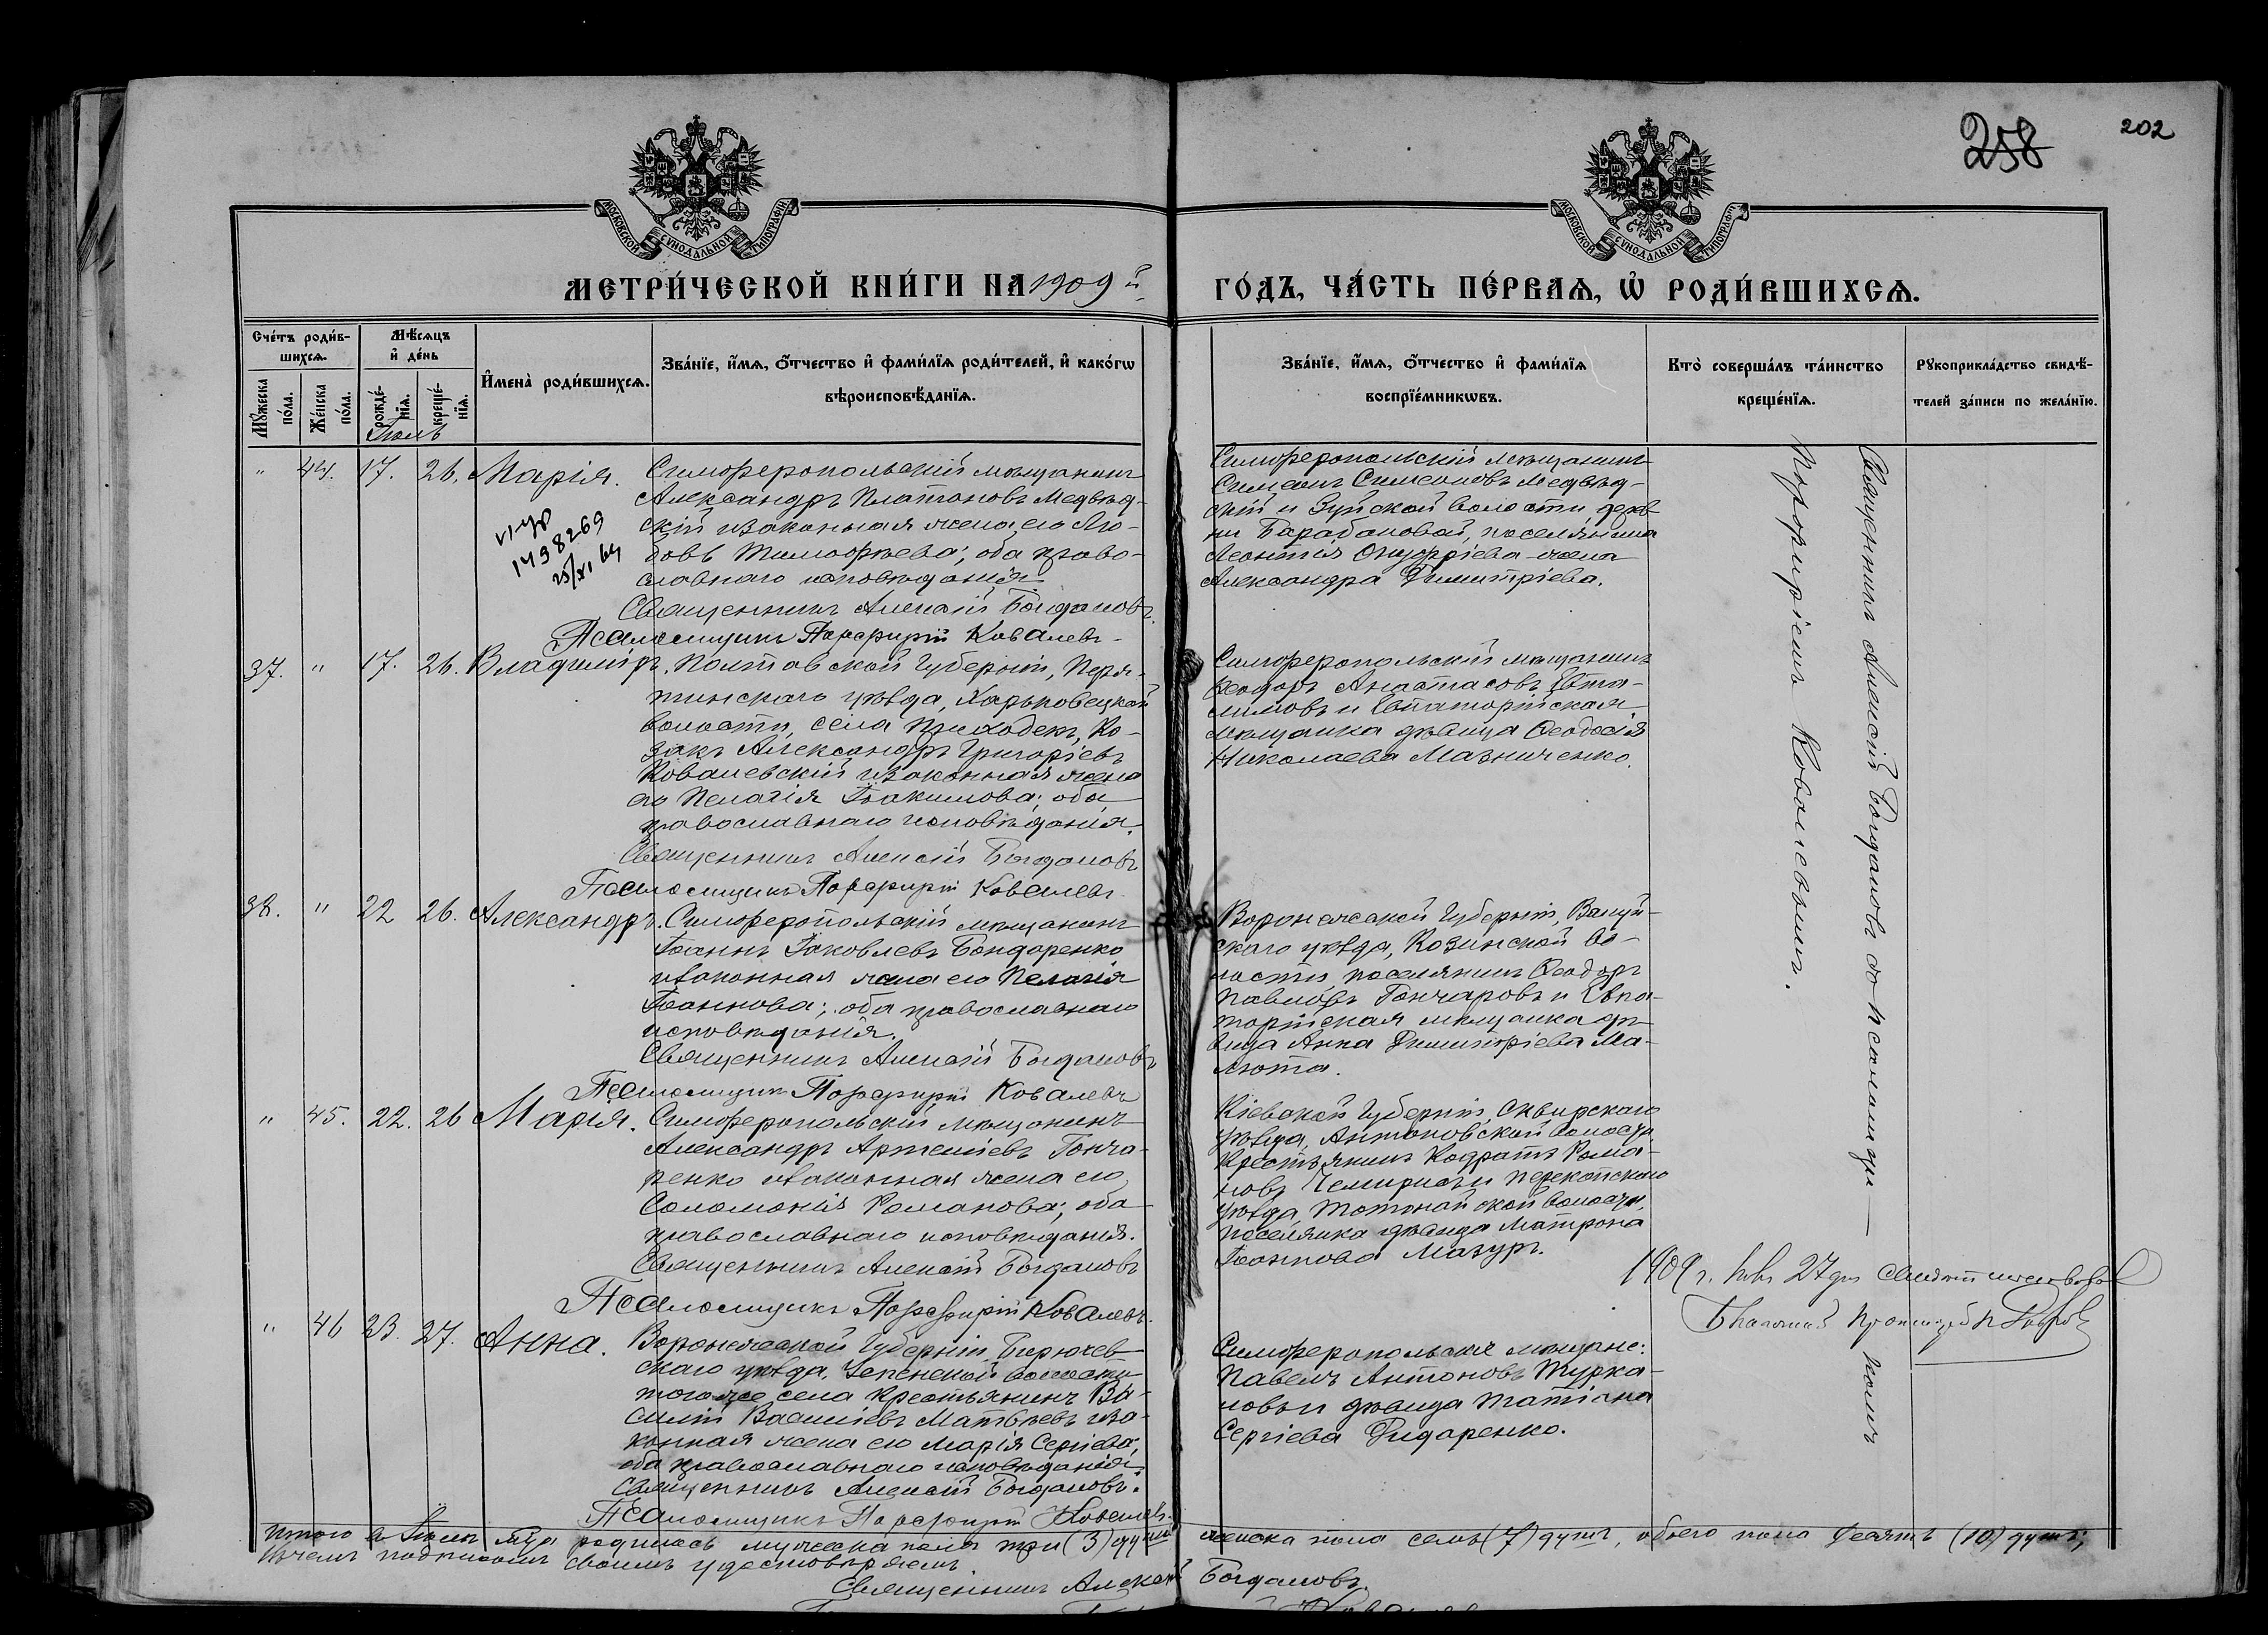 258
202
МОСКОВСКОЙ СѴНОДАЛЬНОЙ ТИПОГРАФІИ
МОСКОВСКОЙ СѴНОДАЛЬНОЙ ТИПОГРАФІИ
МЕТРИ́ЧЕСКОЙ КНИ́ГИ НА 1909й
ГО́ДЪ, ЧА́СТЬ ПЕ́РВАѦ, Ѡ҆ РОДИ́ВШИХСѦ.
Сче́тъ роди́в-
шихсѧ.
Мꙋ́жеска
по́ла.
Же́нска
по́ла.
Мѣ́сѧцъ
и҆ де́нь
рожде́-
нїѧ.
креще́-
нїѧ.
И҆мена̀ роди́вшихсѧ.
Зва́нїе, и҆́мѧ, ѻ҆́тчество и҆ фами́лїѧ роди́телей, и҆ како́гѡ
вѣроисповѣ́данїѧ.
Зва́нїе, и҆́мѧ, ѻ҆́тчество и҆ фами́лїѧ
воспрїе́мникѡвъ.
Кто̀ соверша́лъ та́инство
креще́нїѧ.
Рꙋкоприкла́дство свидѣ́-
телей за́писи по жела́нїю.
Іюль
" 44. 17. 26. Марія.
Симферопольскій мѣщанинъ
Александръ Платоновъ Медвѣд-
скій и законная жена его Лю-
бовь Тимофѣева; оба право-
славнаго исповѣданія
Священникъ Алексій Богдановъ.
Псаломщикъ Порфирій Ковалевъ
1498269
25/XI 64
Симферопольскій мѣщанинъ
Симеонъ Симеоновъ Медвѣд-
скій и Зуйской волости дерев-
ни Барабановой, поселянина
Леонтія Онуфріева жена
Александра Димитріева.
37. " 17. 26. Владиміръ.
Полтавской Губерніи, Пиря-
тинскаго уѣзда, Харьковецкой
волости, села Приходекъ, Ко-
закъ Александръ Григоріевъ
Ковалевскій и законная жена
его Пелагія Іоакимова; оба
православнаго исповѣданія.
Священникъ Алексій Богдановъ
Псаломщикъ Порфирій Ковалевъ
Симферопольскій мѣщанинъ
Ѳеодоръ Анастасовъ
и Евпаторійская
мѣщанка дѣвица Ѳеодосія
Николаева Мазниченко.
38. " 22 26. Александръ.
Симферопольскій мѣщанинъ
Іоаннъ Яковлевъ Бондаренко
и законная жена его Пелагія
Іоаннова; оба православнаго
исповѣданія.
Священникъ Алексій Богдановъ
Псаломщикъ Порфирій Ковалевъ
Воронежской Губерніи, Валуй-
скаго уѣзда, Козинской во-
лости поселянинъ Ѳеодоръ
Павловъ Гончаровъ и Евпа-
торійская мѣщанка дѣ-
вица Анна Димитріева Ма-
люта.
" 45. 22. 26 Марія.
Симферопольскій мѣщанинъ
Александръ Артеміевъ Гонча-
ренко и законная жена его
Соломонія Романова; оба
православнаго исповѣданія.
Священникъ Алексій Богдановъ
Псаломщикъ Порфирій Ковалевъ.
Кіевской Губерніи, Сквирскаго
уѣзда, Антоновской волости
крестьянинъ Кодратъ Рома-
новъ и Перекопскаго
уѣзда, волости,
поселянка дѣвица Матрона
Іоаннова Мазуръ.
" 46 23. 27. Анна.
Воронежской Губерніи, Бирючев-
скаго уѣзда, волости
того же села крестьянинъ Ва-
силій Василіевъ Матвѣевъ и за-
конная жена его Марія Сергіева;
оба православнаго исповѣданія.
Священникъ Алексій Богдановъ.
Псаломщикъ Порфирій Ковалевъ.
Симферопольскіе мѣщане:
Павелъ Антоновъ Турка-
новъ и дѣвица Татіана
Сергіева Дидоренко.
Священникъ Алексій Богдановъ съ псаломщи-
комъ
Порфиріемъ Ковалевымъ.
1909 г. 27 дня
Благочинный
Итого въ Іюлѣ м-цѣ родилось мужеска пола три (3) души женска пола семь (7) душъ, обоего пола десять (10) душъ;
въ чемъ подписомъ своимъ удостовѣряемъ.
Священникъ Алексій Богдановъ.